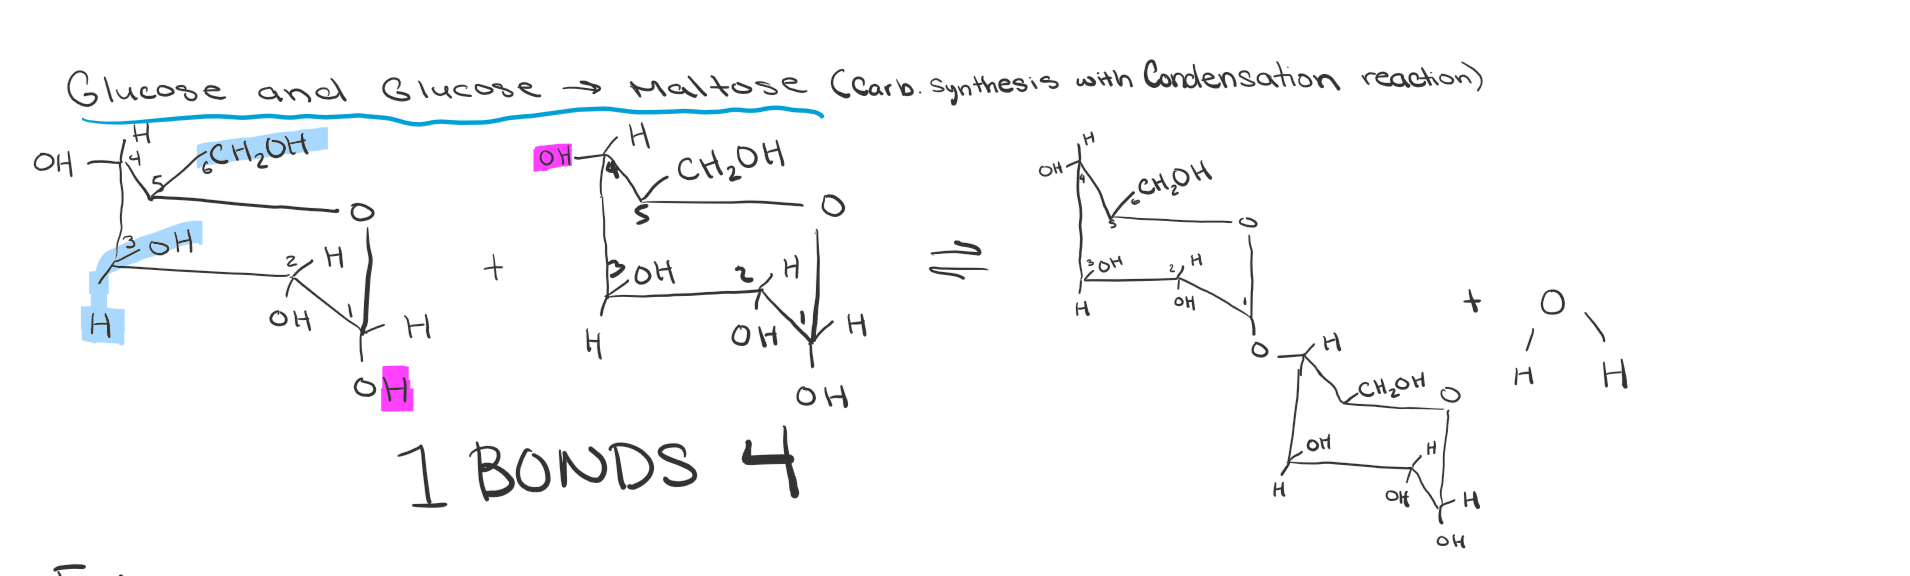 Glucose and Glucose → Maltose (Carb. Synthesis with Condensation reaction)
H
OH 4 6 CH₂OH
5
O
3 OH
2 H
H
OH 1 H
OH
+
OH H
4 CH₂OH
5 O
3 OH 2 H
H OH 1 H
OH
1 BONDS 4
⇌
H
OH 4 6 CH₂OH
5 O
3 OH 2 H
H OH 1
O H
CH₂OH O
OH H
H OH H
OH
+
O
H H